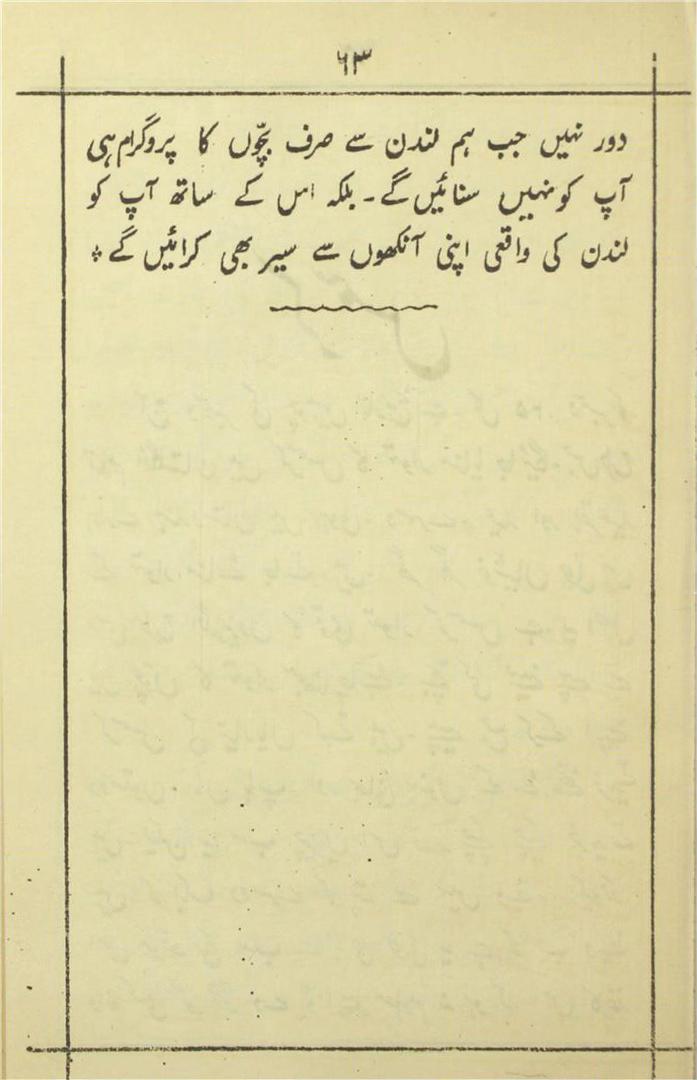 ۶۳
دور نہیں جب ہم لندن سے صرف بچّوں کا پروگرام ہی
آپ کو نہیں سنائیں گے۔ بلکہ اس کے ساتھ آپ کو
لندن کی واقعی اپنی آنکھوں سے سیر بھی کرائیں گے ٭